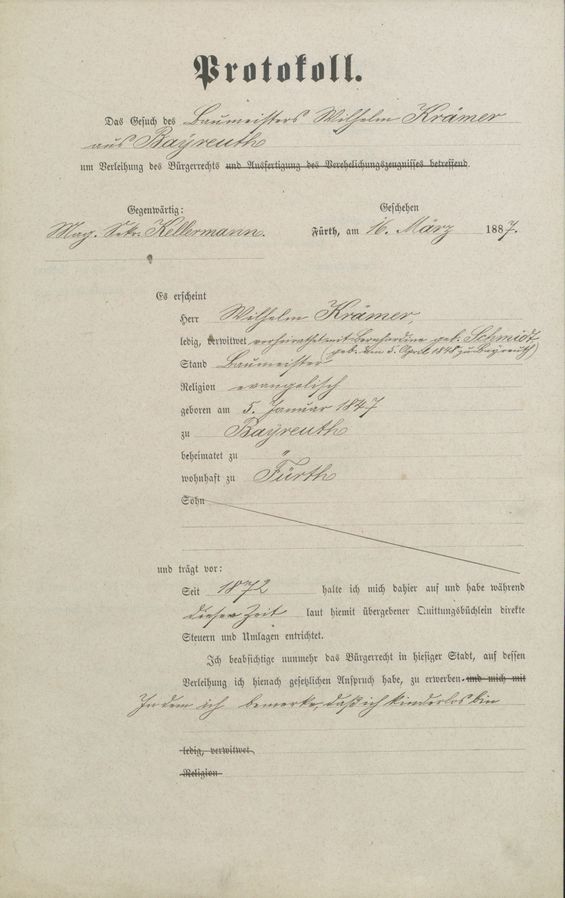 Protokoll.
Das Gesuch des Baumeisters Wilhelm Krämer
aus Bayreuth
um Verleihung des Bürgerrechts und Ausfertigung des Verehelichungszeugnisses betreffend.
Gegenwärtig:
Mag. Sekr. Kellermann.
Geschehen
Fürth, am 16. März 1887.
Es erscheint
Herr Wilhelm Krämer,
ledig, verwitwet verheirathet mit Bernhardine geb. Schmidt
(geb. am 5. April 1848 zu Bayreuth)
Stand Baumeister
Religion evangelisch
geboren am 5. Januar 1847
zu Bayreuth
beheimatet zu "
wohnhaft zu Fürth
Sohn
und trägt vor:
Seit 1872 halte ich mich dahier auf und habe während
dieser Zeit laut hiemit übergebener Quittungsbüchlein direkte
Steuern und Umlagen entrichtet.
Ich beabsichtige nunmehr das Bürgerrecht in hiesiger Stadt, auf dessen
Verleihung ich hienach gesetzlichen Anspruch habe, zu erwerben und mich mit
In dem ich bemerke, daß ich kinderlos bin
ledig, verwitwet
Religion